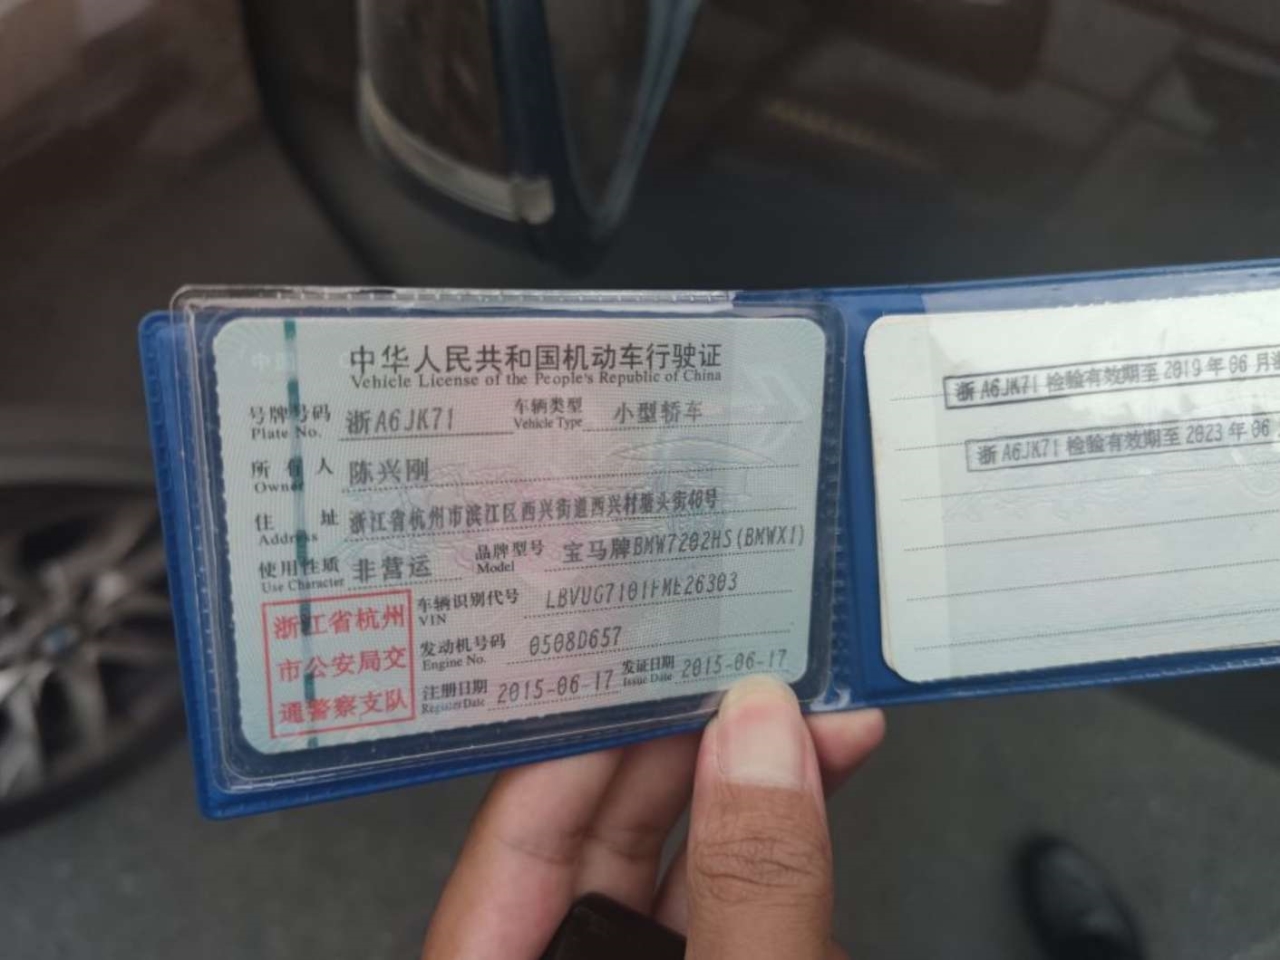 中华人民共和国机动车行驶证
Vehicle License of the People's Republic of China
号牌号码 浙A6JK71 车辆类型 小型轿车
Plate No. Vehicle Type
所有人 陈兴刚
Owner
住址 浙江省杭州市滨江区西兴街道西兴村塘头街48号
Address
使用性质 非营运 品牌型号 宝马牌BMW7202HS(BMWX1)
Use Character Model
车辆识别代号 LBVUG7101FME26303
VIN
发动机号码 0508D657
Engine No.
注册日期 2015-06-17 发证日期 2015-06-17
Register Date Issue Date
浙江省杭州
市公安局交
通警察支队
浙A6JK71 检验有效期至2019年06月
浙A6JK71 检验有效期至2023年06